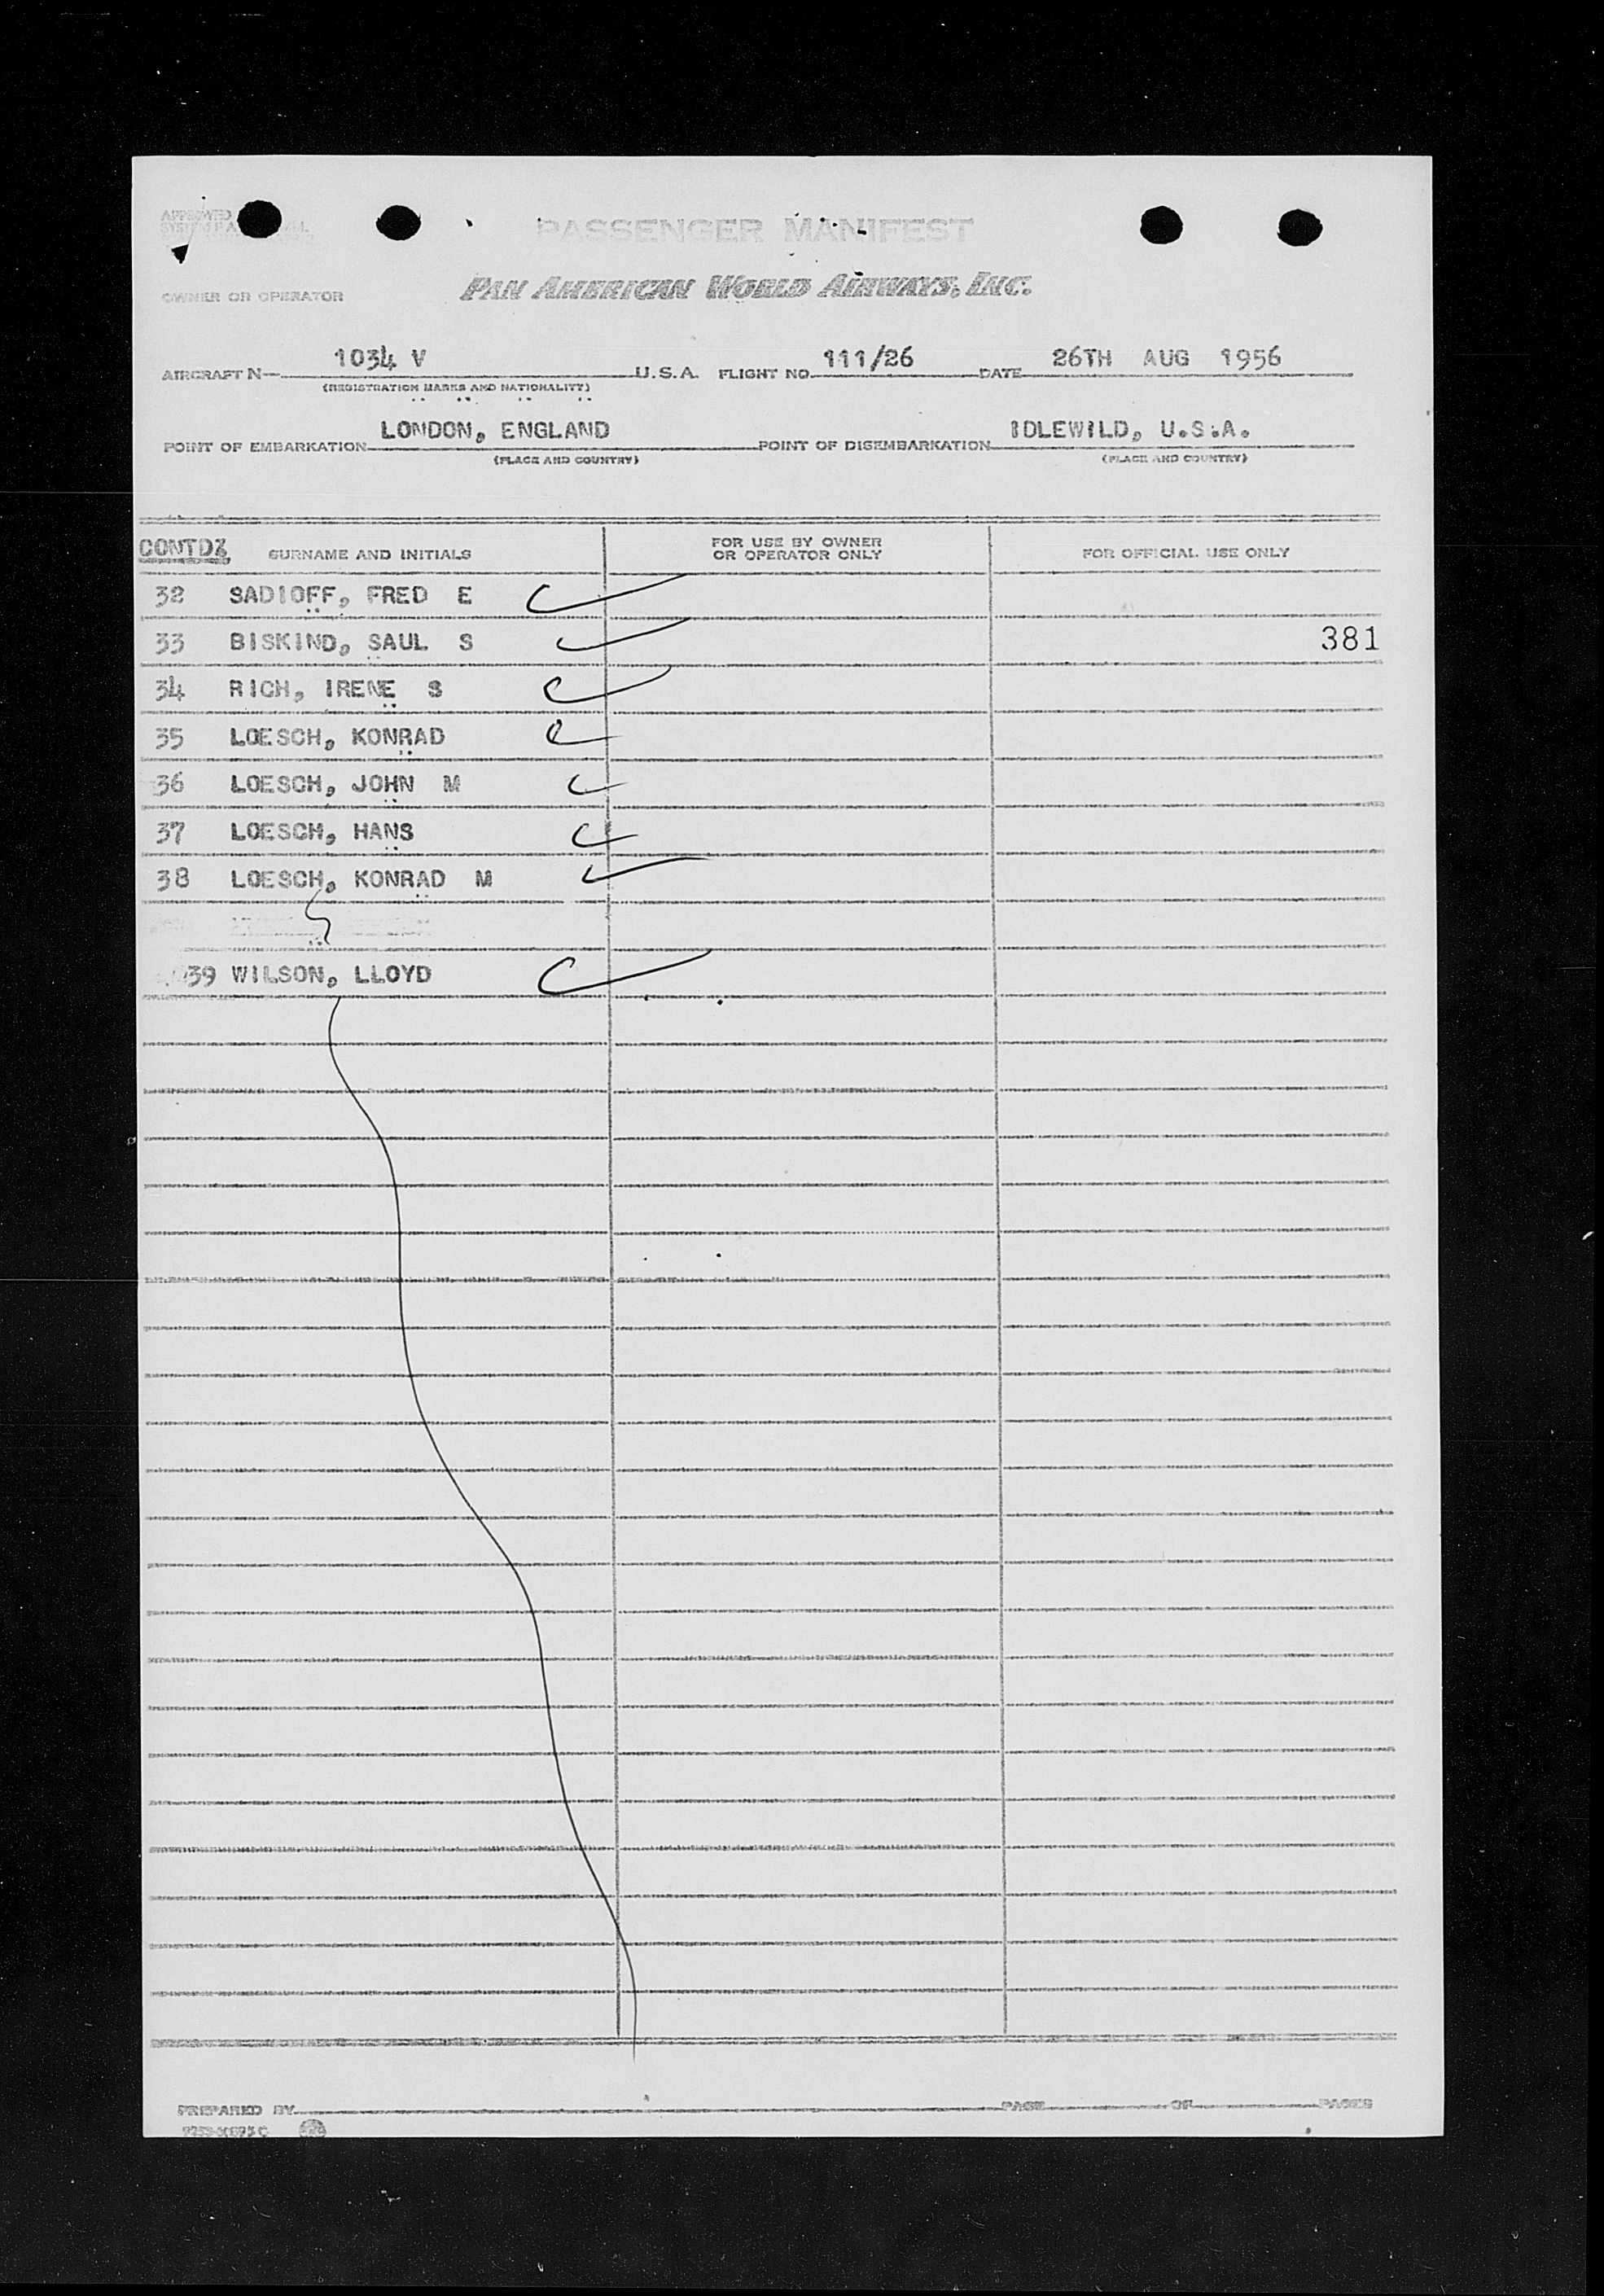 APPROVED
PASSENGER MANIFEST
OWNER OR OPERATOR PAN AMERICAN WORLD AIRWAYS, INC.
AIRCRAFT N— 1034 V U.S.A. FLIGHT NO. 111/26 DATE 26TH AUG 1956
(REGISTRATION MARKS AND NATIONALITY)
POINT OF EMBARKATION LONDON, ENGLAND POINT OF DISEMBARKATION IDLEWILD, U.S.A.
(PLACE AND COUNTRY) (PLACE AND COUNTRY)
CONTD: SURNAME AND INITIALS FOR USE BY OWNER OR OPERATOR ONLY FOR OFFICIAL USE ONLY
32 SADIOFF, FRED E
33 BISKIND, SAUL S 381
34 RICH, IRENE S
35 LOESCH, KONRAD
36 LOESCH, JOHN M
37 LOESCH, HANS
38 LOESCH, KONRAD M
39 WILSON, LLOYD
PREPARED BY PAGE OF PAGES